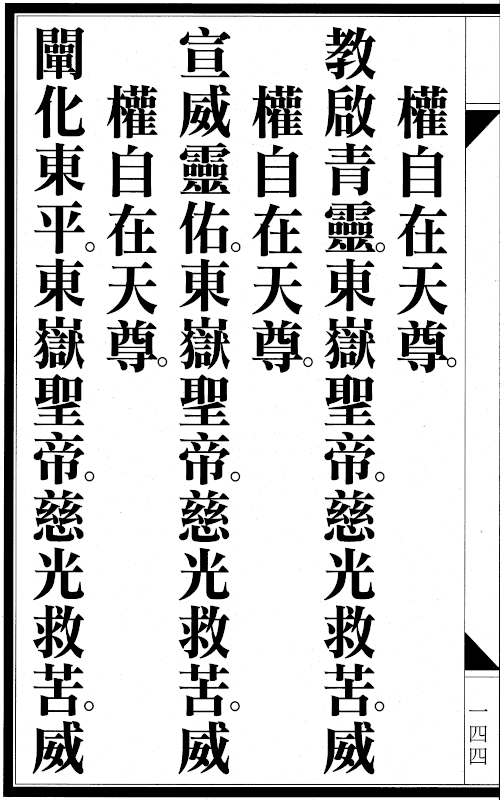 權自在天尊。
教啟青靈。東嶽聖帝。慈光救苦。威
權自在天尊。
宣威靈佑。東嶽聖帝。慈光救苦。威
權自在天尊。
闡化東平。東嶽聖帝。慈光救苦。威
一四四